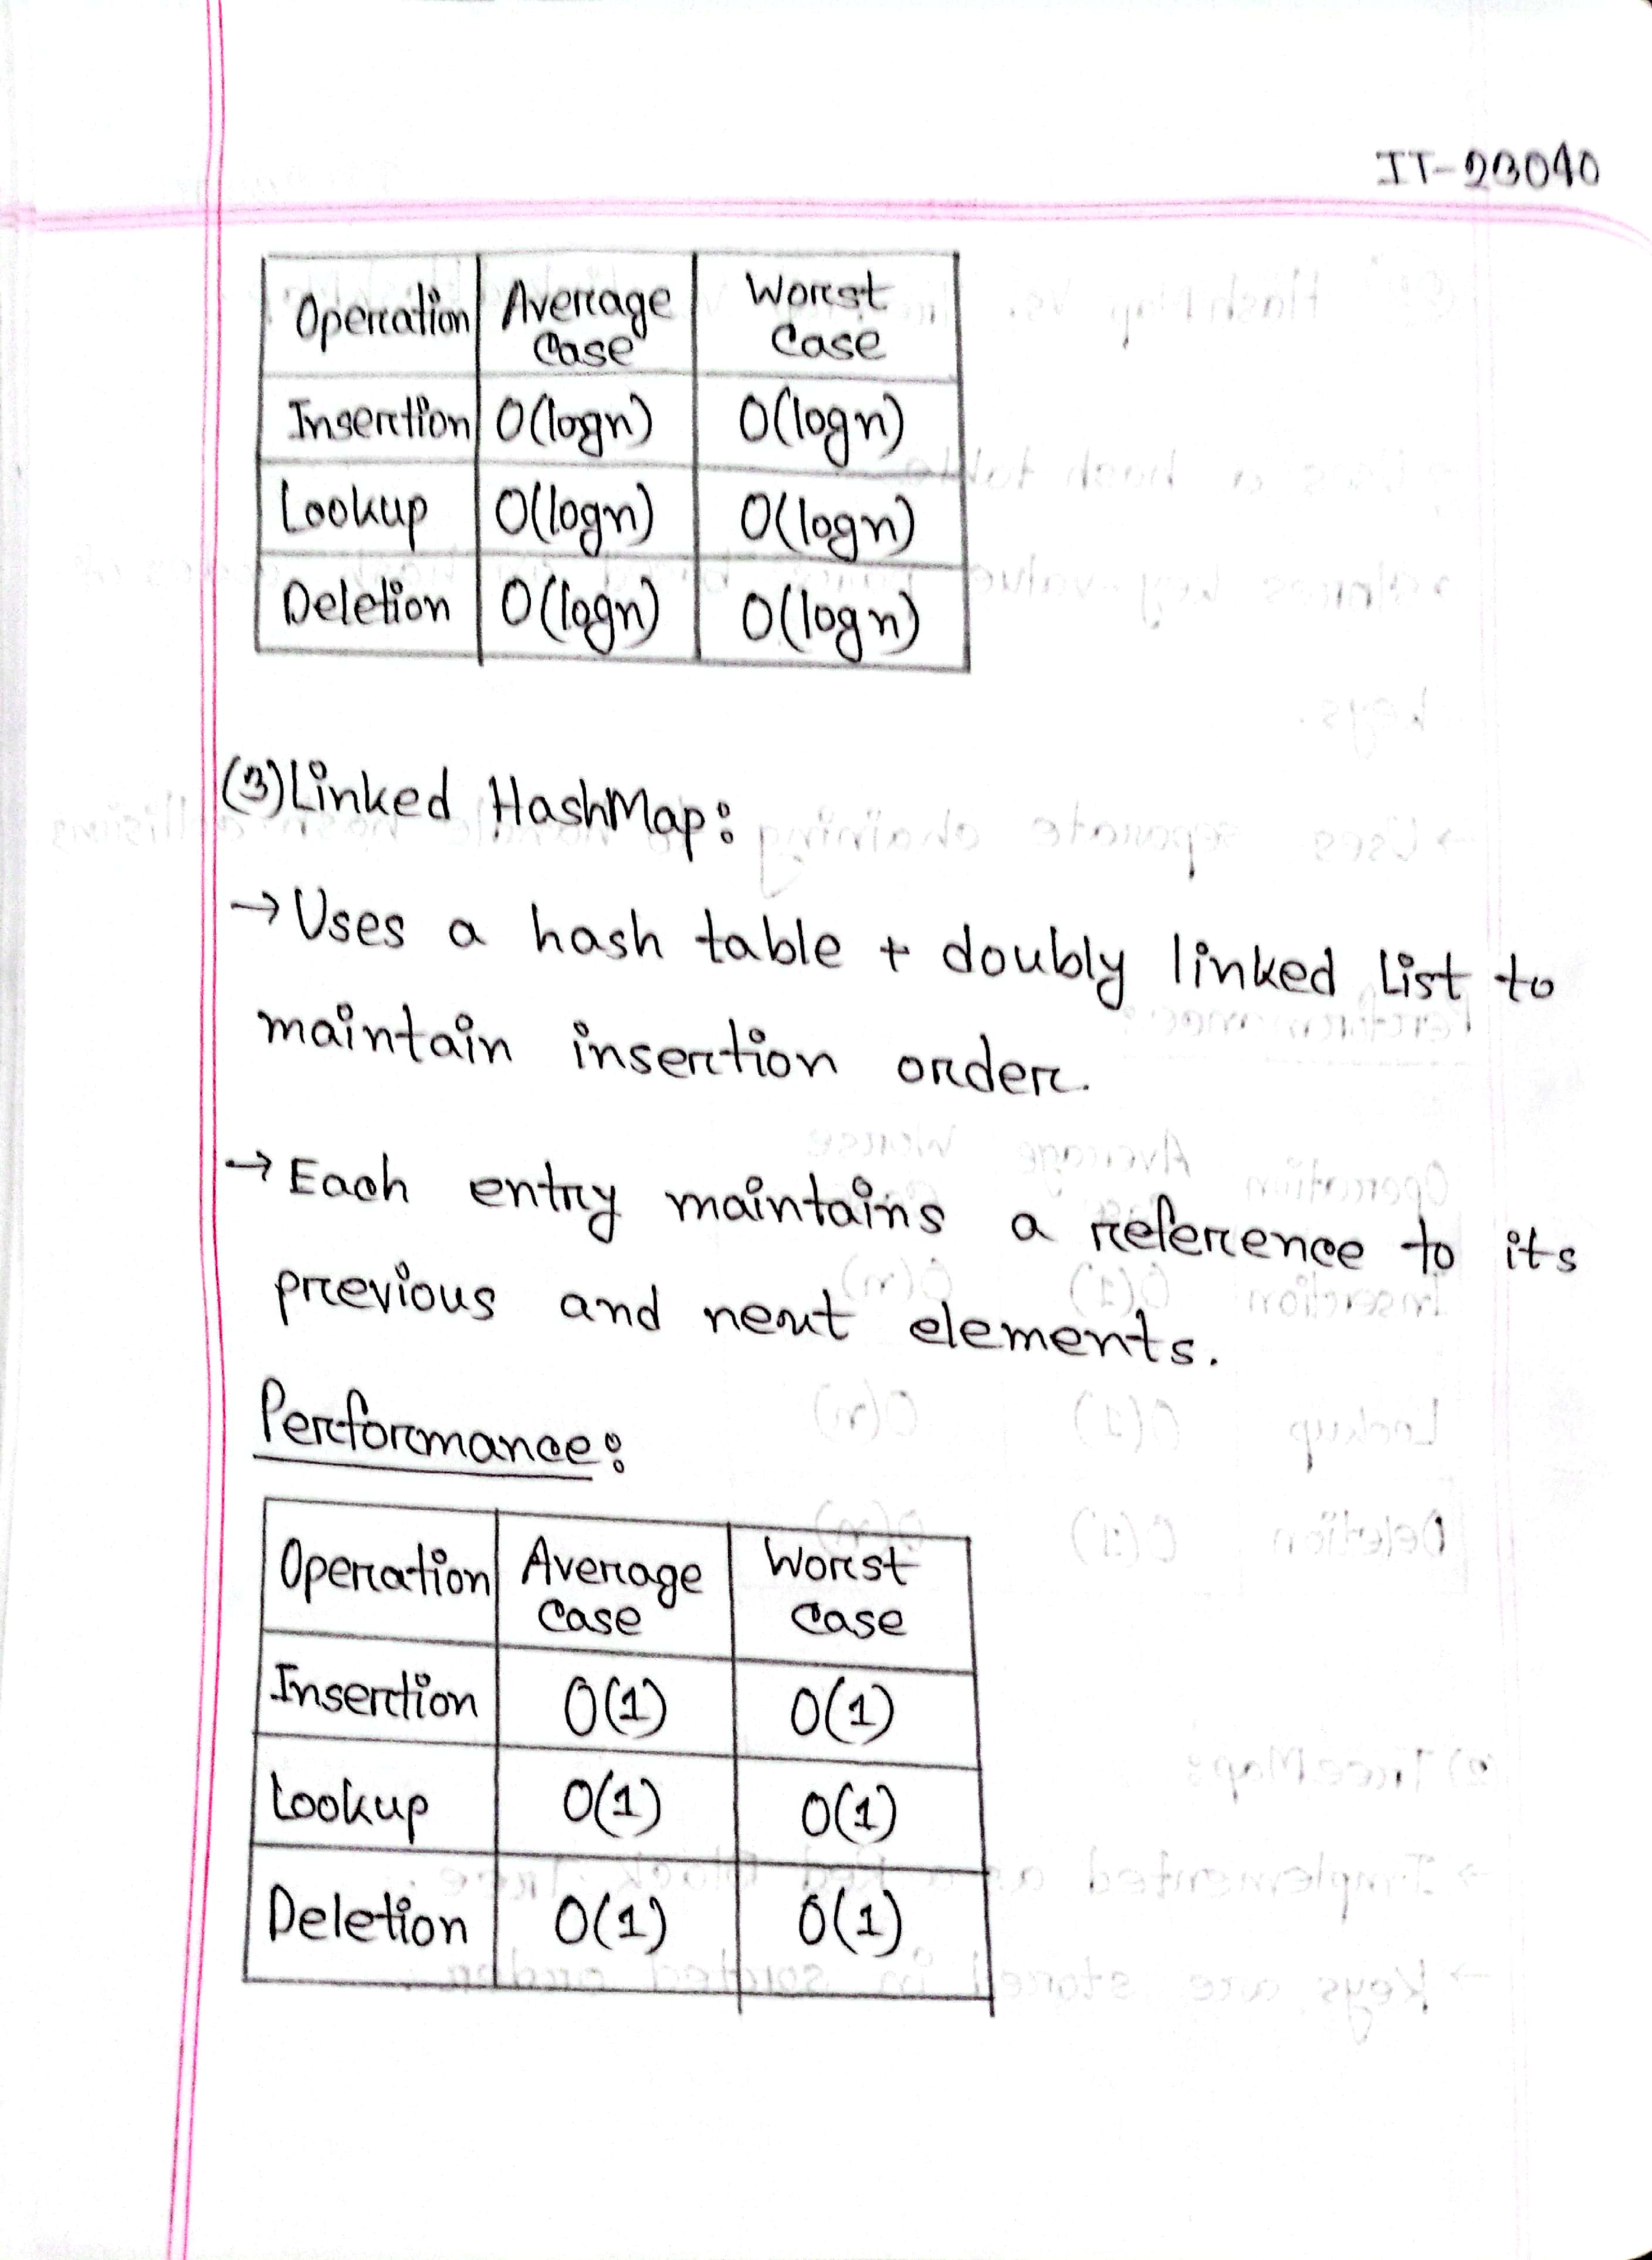 IT-23040
Operation Average Case Worst Case
Insertion O(logn) O(logn)
Lookup O(logn) O(logn)
Deletion O(logn) O(logn)
(3) Linked HashMap:
→ Uses a hash table + doubly linked list to
maintain insertion order.
→ Each entry maintains a reference to its
previous and next elements.
Performance:
Operation Average Case Worst Case
Insertion O(1) O(1)
Lookup O(1) O(1)
Deletion O(1) O(1)